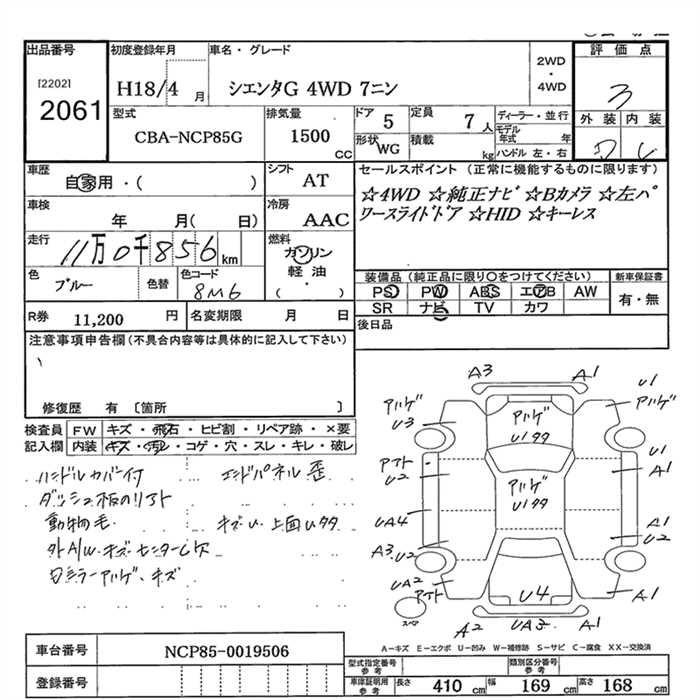 出品番号
[2202]
2061
初度登録年月
H18/4 月
車名・グレード
シエンタG 4WD 7ニン
2WD
・
4WD
評価点
3
外装 内装
型式
CBA-NCP85G
排気量
1500
CC
ドア 5
形状 WG
定員 7 人
積載 kg
ディーラー・並行
モデル年式 年
ハンドル 左・右
車歴
自家用・( )
シフト
AT
車検
年 月( 日)
冷房
AAC
走行
11万0千856 km
燃料
ガソリン
軽油
( )
色
ブルー
色替
色コード
8M6
R券 11,200 円
名変期限 月 日
セールスポイント (正常に機能するものに限ります)
☆4WD ☆純正ナビ ☆Bカメラ ☆左パ
ワースライドドア ☆HID ☆キーレス
装備品(純正品に限り○をつけてください)
PS PW ABS エアB AW
SR ナビ TV カワ
新車保証書
有・無
後日品
注意事項申告欄(不具合内容等は具体的に記入して下さい)
修復歴 有 〔箇所 〕
検査員 FW キズ・飛石・ヒビ割・リペア跡・×要
記入欄 内装 キズ・汚レ・コゲ・穴・スレ・キレ・破レ
ハンドルカバー付
エンドパネル歪
ダッシュ板のリフト
動物毛.
キズU.上面Uタタ
外A/W.キズ.センター欠
Dミラーアハゲ、キズ
A3
A1
アハゲ
U3
アハゲ
U1タタ
U1
アハゲ
アアト
U2
U1
A1
アハゲ
U1タタ
UA4
A1
U2
A3
U2
UA2
アアト
U4
A1
スペア
A2
UA3
A1
A-キズ E-エクボ U-凹み W-補修跡 S-サビ C-腐食 XX-交換済
車台番号 NCP85-0019506
登録番号
型式指定番号
参考
類別区分番号
参考
車庫証明用
参考
長さ 410 cm 幅 169 cm 高さ 168 cm